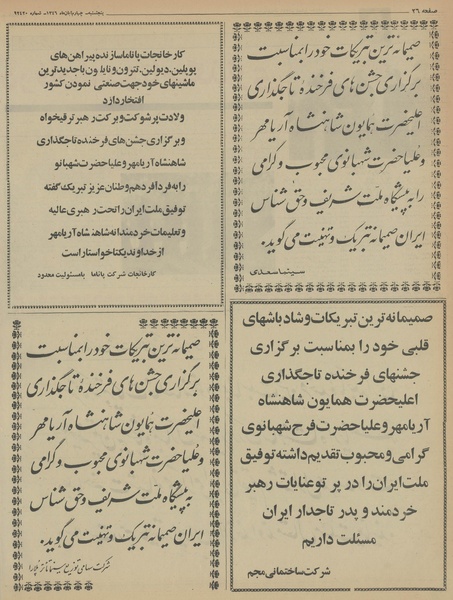 صفحه ۲۶
صمیمانه ترین تبریکات خود را بمناسبت
برگزاری جشن های فرخنده تاجگذاری
اعلیحضرت همایون شاهنشاه آریامهر
و علیاحضرت شهبانوی محبوب و گرامی
را به پیشگاه ملت شریف و حق شناس
ایران صمیمانه تبریک و تهنیت می گوید.
سینما سعدی
کارخانجات پاناما سازنده پیراهن های
پوپلین، دیولین، تترون و نایلون با جدیدترین
ماشینهای خود جهت صنعتی نمودن کشور
افتخار دارد
ولادت پر شوکت و برکت رهبر ترقیخواه
و برگزاری جشن های فرخنده تاجگذاری
شاهنشاه آریامهر و علیاحضرت شهبانو
را به فرد فرد هم وطنان عزیز تبریک گفته
توفیق ملت ایران را تحت رهبری عالیه
و تعلیمات خردمندانه شاهنشاه آریامهر
از خداوند یکتا خواستار است
کارخانجات شرکت پاناما بامسئولیت محدود
صمیمانه ترین تبریکات و شادباشهای
قلبی خود را بمناسبت برگزاری
جشنهای فرخنده تاجگذاری
اعلیحضرت همایون شاهنشاه
آریامهر و علیاحضرت فرح شهبانوی
گرامی و محبوب تقدیم داشته توفیق
ملت ایران را در پر تو عنایات رهبر
خردمند و پدر تاجدار ایران
مسئلت داریم
شرکت ساختمانی مجم
صمیمانه ترین تبریکات خود را بمناسبت
برگزاری جشن های فرخنده تاجگذاری
اعلیحضرت همایون شاهنشاه آریامهر
و علیاحضرت شهبانوی محبوب و گرامی
به پیشگاه ملت شریف و حق شناس
ایران صمیمانه تبریک و تهنیت می گوید.
شرکت سهامی